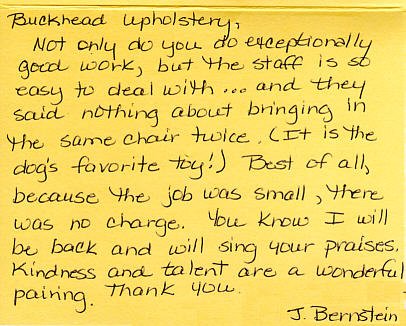 Buckhead Upholstery,
Not only do you do exceptionally
good work, but the staff is so
easy to deal with... and they
said nothing about bringing in
the same chair twice. (It is the
dog's favorite toy!) Best of all,
because the job was small, there
was no charge. You know I will
be back and will sing your praises.
Kindness and talent are a wonderful
pairing. Thank you.
J. Bernstein